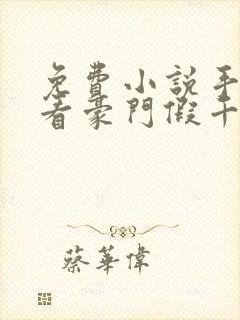 免費小説手
看豪門假千
蔡華偉